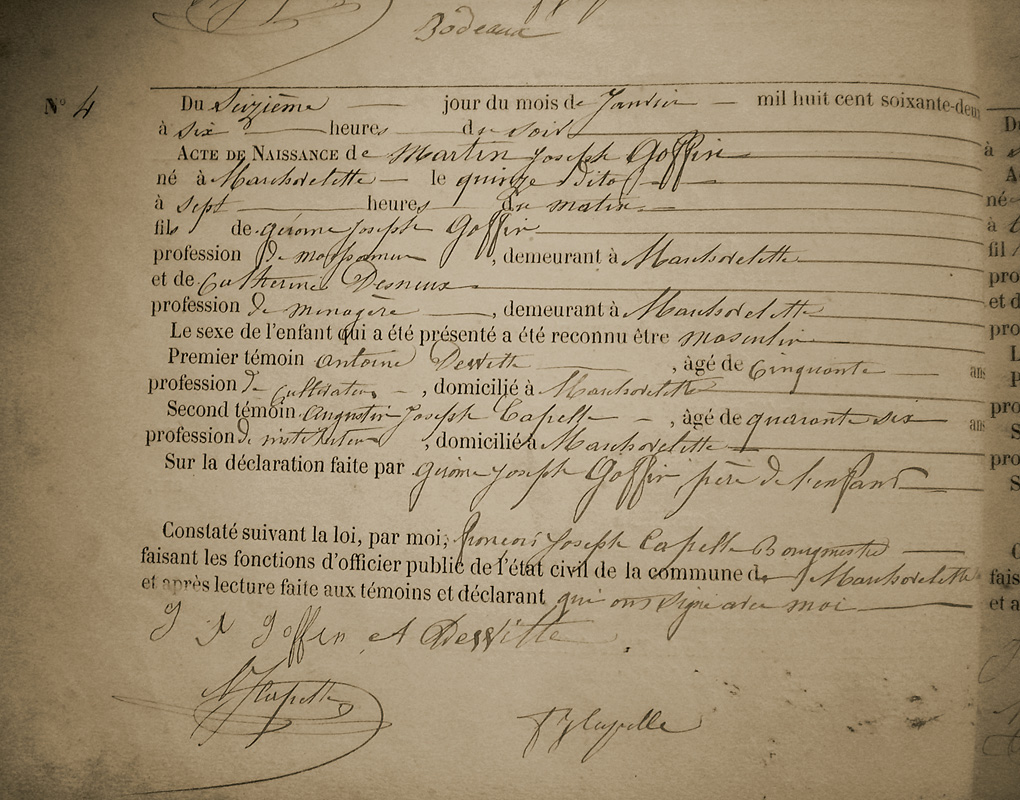 Bodeaux
N° 4
Du Seizième jour du mois de Janvier mil huit cent soixante-deux
à six heures du soir
ACTE DE NAISSANCE de Martin Joseph Goffin
né à Marchovelette le quinze dito
à sept heures du matin
fils de gérôme Joseph Goffin
profession de, demeurant à Marchovelette
et de Catherine Desneux
profession de menagère, demeurant à Marchovelette
Le sexe de l'enfant qui a été présenté a été reconnu être masculin
Premier témoin antoine Dewitte, âgé de Cinquante ans
profession de Cultivateur, domicilié à Marchovelette
Second témoin augustin Joseph Capelle, âgé de quarante six ans
profession de instituteur, domicilié à Marchovelette
Sur la déclaration faite par gérôme Joseph Goffin père de l'enfant
Constaté suivant la loi, par moi, francois Joseph Capelle Bourgmestre
faisant les fonctions d'officier public de l'état civil de la commune de Marchovelette
et après lecture faite aux témoins et déclarant qui ont signé avec moi
J J Goffin A Dewitte
AJCapelle
FJCapelle